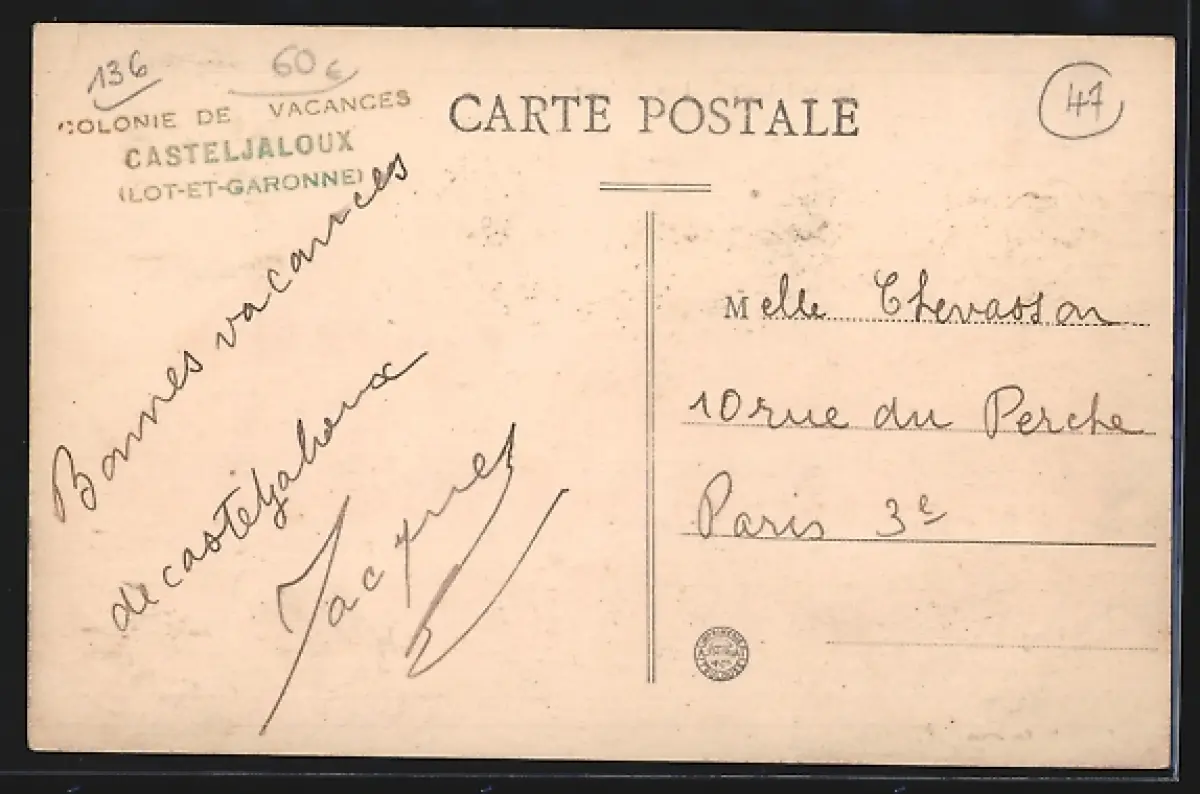 136
60 €
COLONIE DE VACANCES
CASTELJALOUX
(LOT-ET-GARONNE)
CARTE POSTALE
47
Bonnes vacances
de casteljaloux
Jacques
Melle Chevasson
10 rue du Perche
Paris 3e